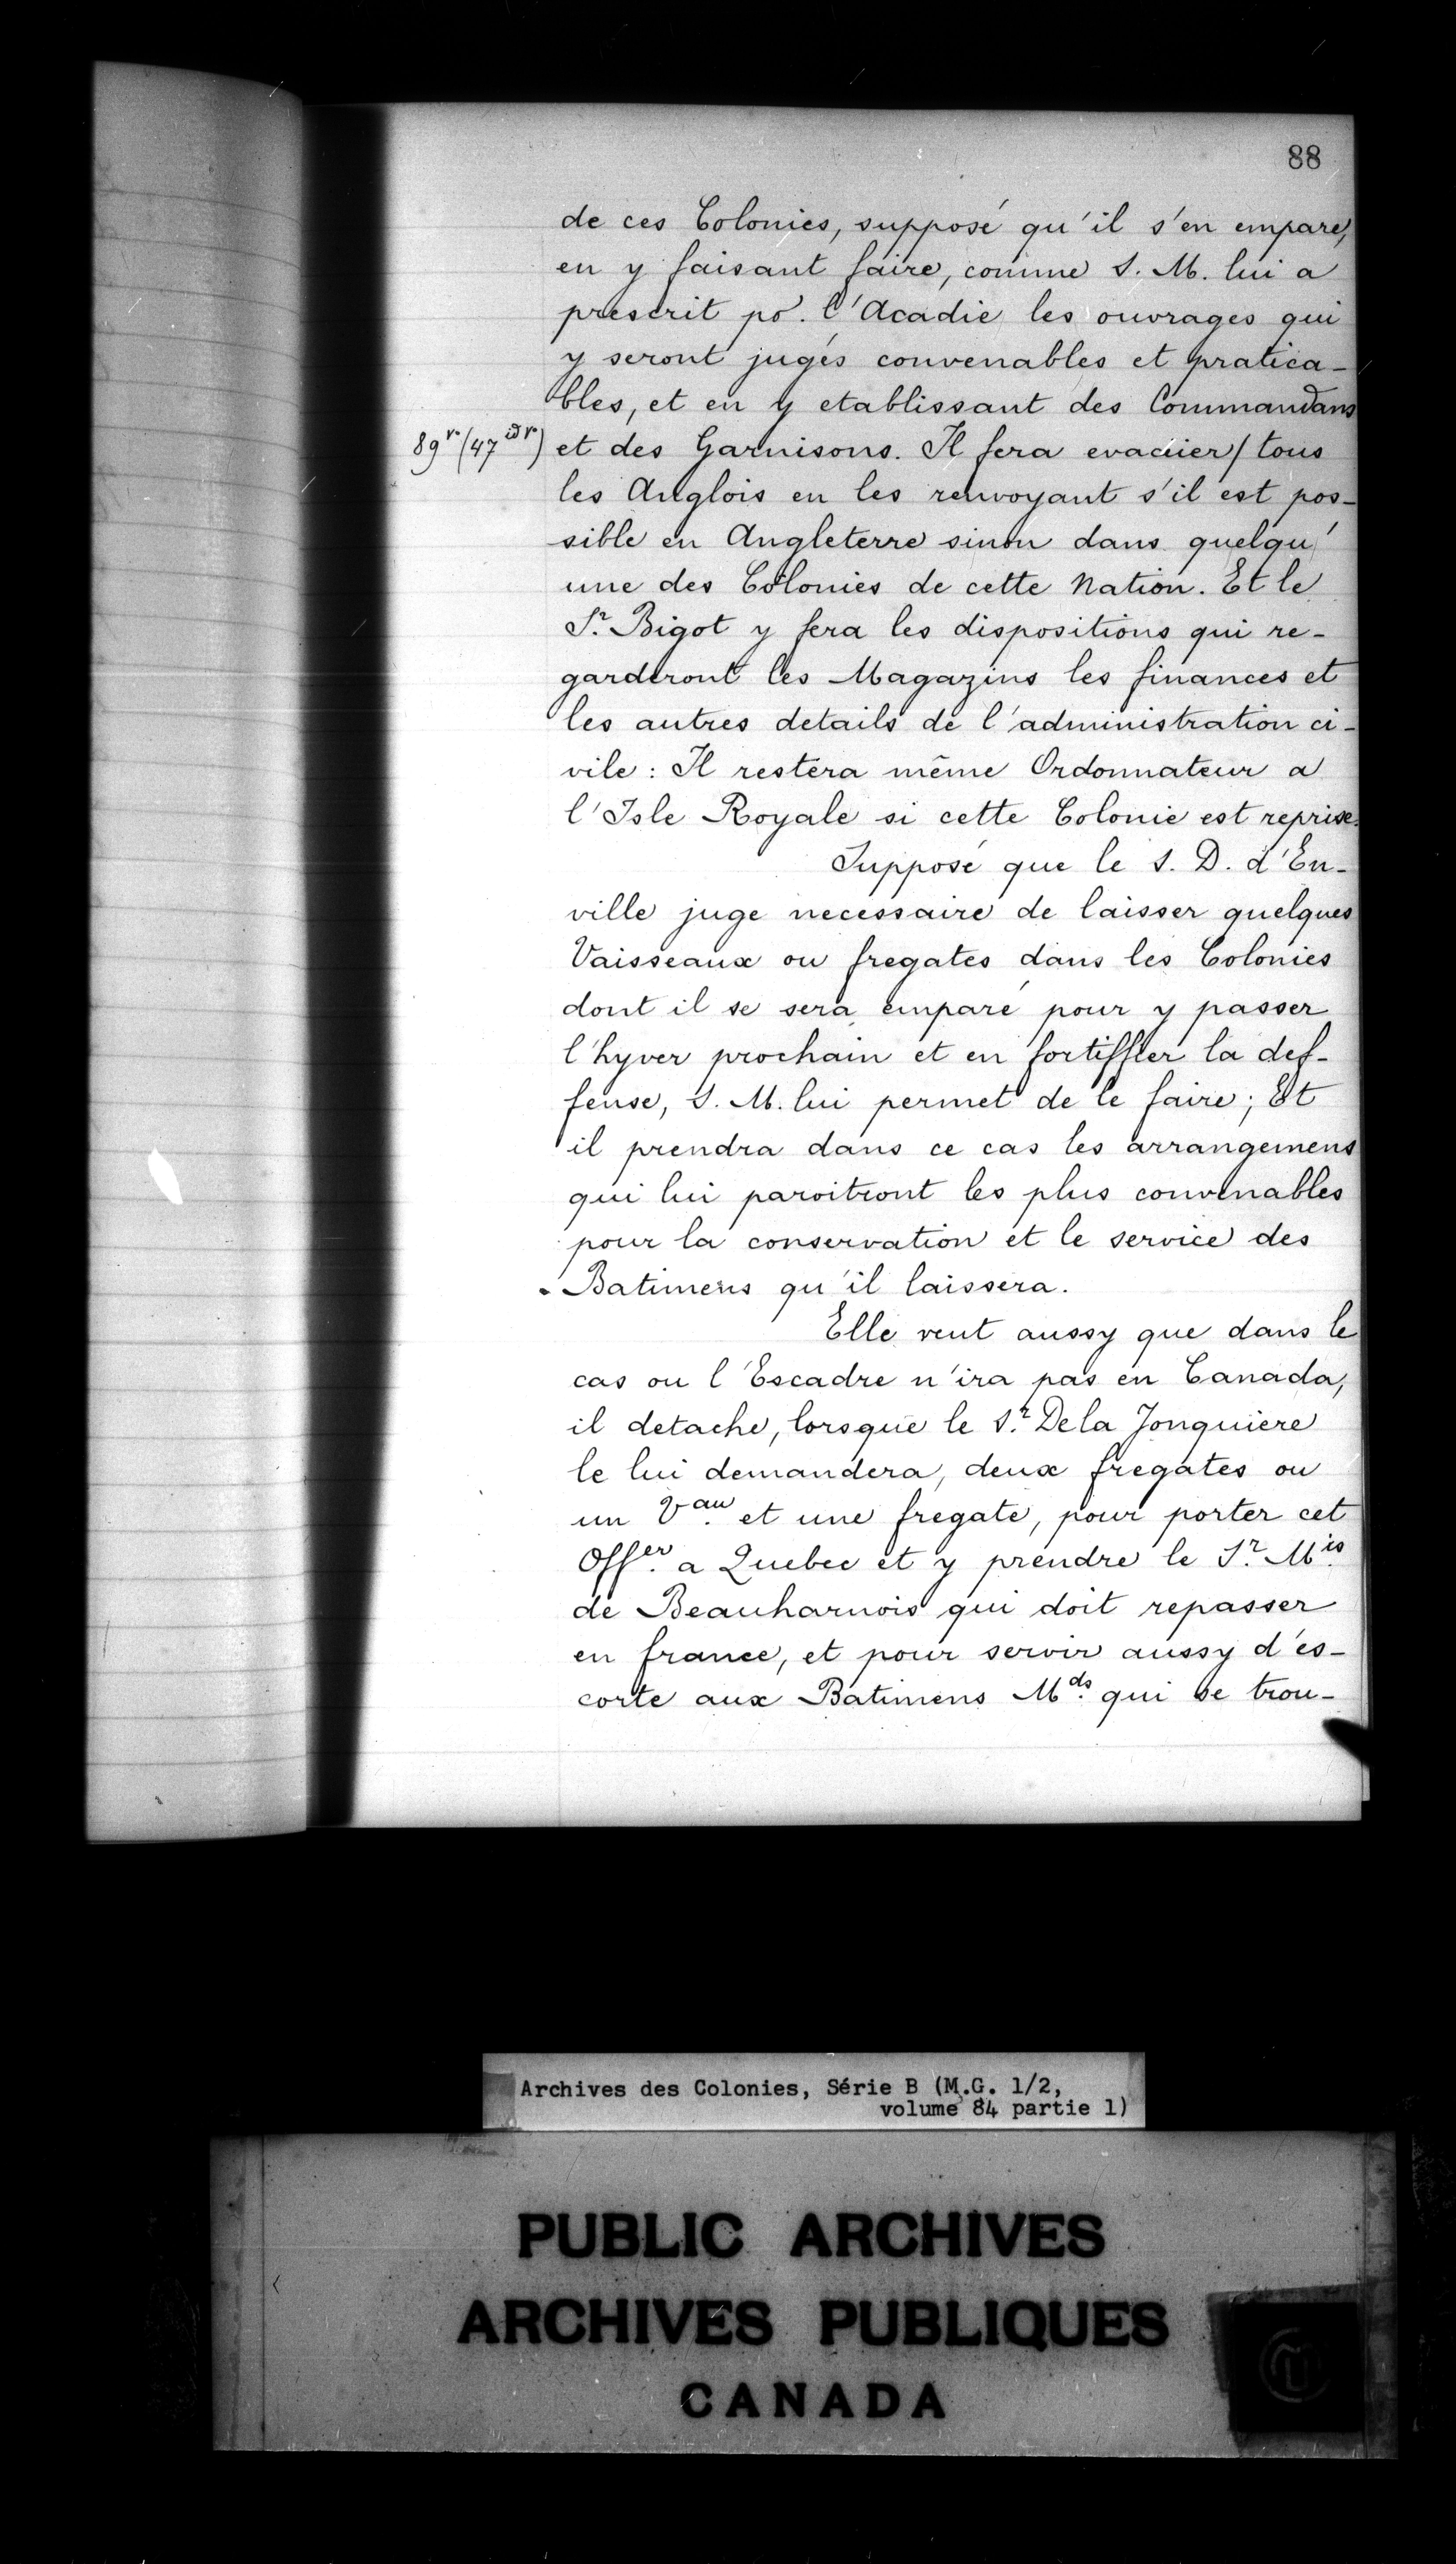 88
de ces Colonies, supposé qu'il s'en empare,
en y faisant faire, comme S. M. lui a
prescrit po.r l'Acadie les ouvrages qui
y seront jugés convenables et pratica-
bles, et en y etablissant des Commandans
89 v° (47 v°)
et des Garnisons. Il fera evacüer/ tous
les Anglois en les renvoyant s'il est pos-
sible en Angleterre sinon dans quelqu'
une des Colonies de cette Nation. Et le
S.r Bigot y fera les dispositions qui re-
garderont les Magazins les finances et
les autres details de l'administration ci-
vile : Il restera même Ordonnateur a
l'Isle Royale si cette Colonie est reprise.
Supposé que le S. D. d'En-
ville juge necessaire de laisser quelques
Vaisseaux ou fregates dans les Colonies
dont il se sera emparé pour y passer
l'hyver prochain et en fortiffier la def-
fense, S. M. lui permet de le faire ; Et
il prendra dans ce cas les arrangemens
qui lui paroitront les plus convenables
pour la conservation et le service des
Batimens qu'il laissera.
Elle veut aussy que dans le
cas ou l'Escadre n'ira pas en Canada,
il detache, lorsque le S.r De la Jonquiere
le lui demandera, deux fregates ou
un V.au et une fregate, pour porter cet
Off.er a Quebec et y prendre le S.r M.is
de Beauharnois qui doit repasser
en france, et pour servir aussy d'es-
corte aux Batimens M.ds qui se trou-
Archives des Colonies, Série B (M.G. 1/2,
volume 84 partie 1)
PUBLIC ARCHIVES
ARCHIVES PUBLIQUES
CANADA